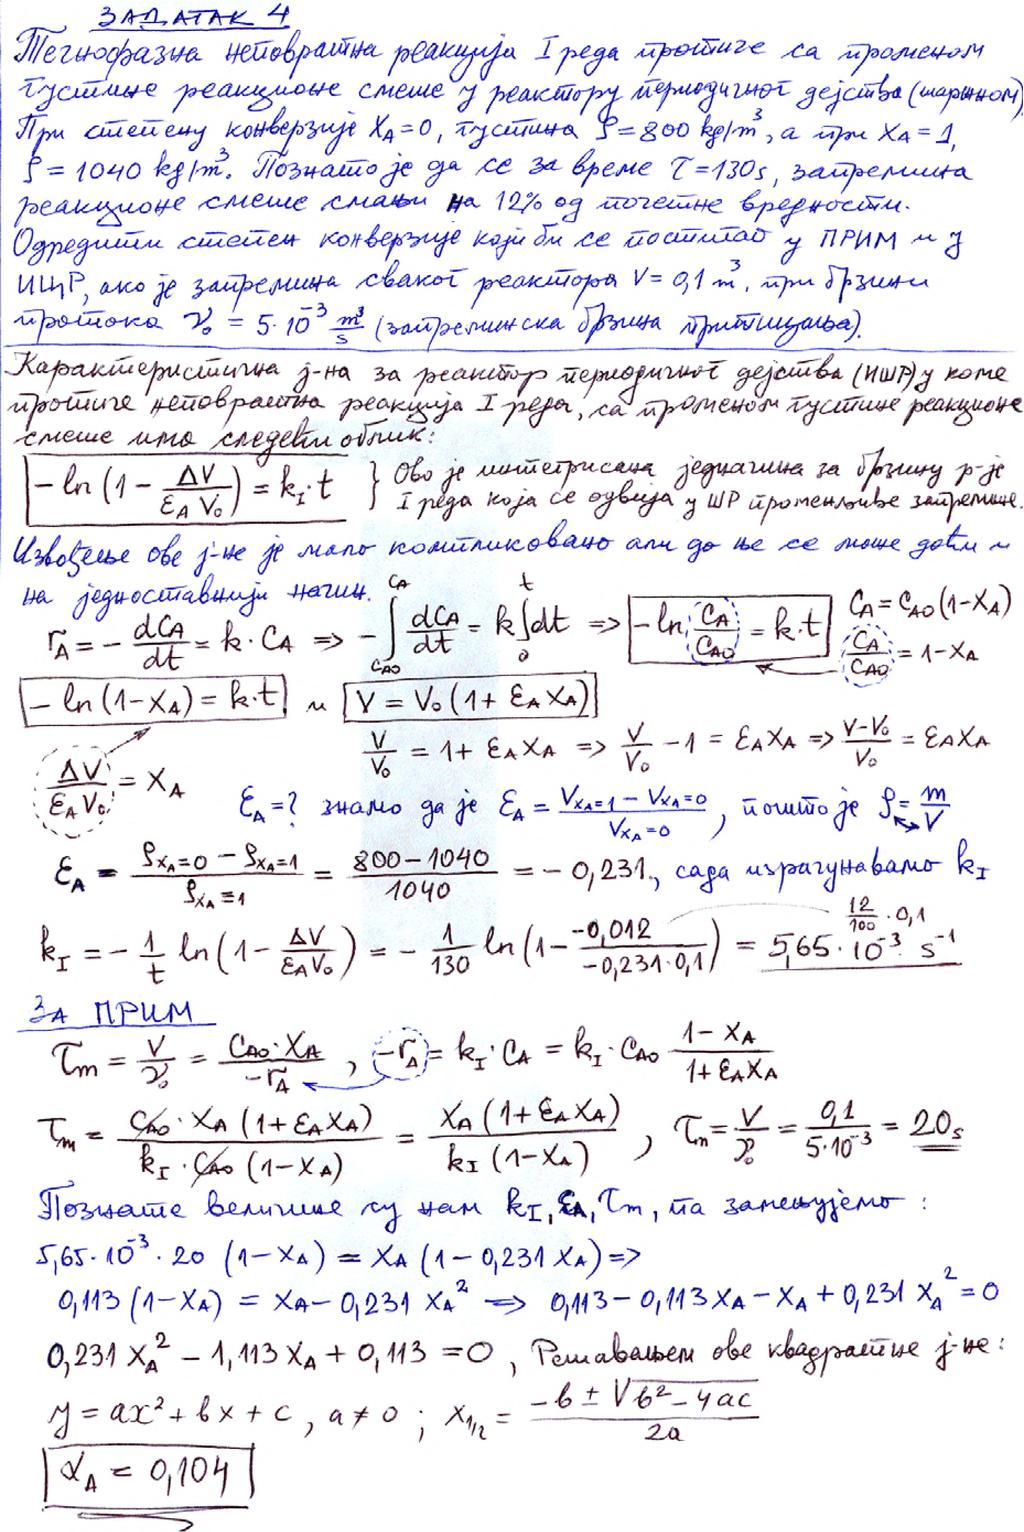 ЗАДАТАК 4
Течнофазна неповратна реакција I реда протиче са променом
густине реакционе смеше у реактору периодичног дејства (шаржном).
При степену конверзије XA=0, густина ρ=800 kg/m³, а при XA=1,
ρ=1040 kg/m³. Познато је да се за време τ=130s, запремина
реакционе смеше смањи на 12% од почетне вредности.
Одредити степен конверзије који би се постигао у ПРИМ и у
ИЦР, ако је запремина сваког реактора V=0,1 m³, при брзини
протока 𝒱₀ = 5·10⁻³ m³/s (запреминска брзина притицања).
Карактеристична ј-на за реактор периодичног дејства (ИШР) у коме
протиче неповратна реакција I реда, са променом густине реакционе
смеше има следећи облик:
-ln(1 - ΔV/(εA V₀)) = kI·t } Ово је интегрисана једначина за брзину р-је
I реда која се одвија у ШР променљиве запремине.
Извођење ове ј-не је мало компликовано али до ње се може доћи и
на једноставнији начин.
rA = - dCA/dt = k·CA => - ∫[CA0→CA] dCA/dt = k∫[0→t] dt => -ln CA/CA0 = k·t CA = CA0(1-XA)
CA/CA0 = 1-XA
-ln(1-XA) = k·t и V = V₀(1+εA XA)
V/V₀ = 1+εA XA => V/V₀ - 1 = εA XA => (V-V₀)/V₀ = εA XA
ΔV/(εA V₀) = XA
εA=? знамо да је εA = (VXA=1 - VXA=0)/VXA=0, пошто је ρ = m/V
εA = (ρXA=0 - ρXA=1)/ρXA=1 = (800-1040)/1040 = -0,231, сада израчунавамо kI
kI = - 1/t ln(1 - ΔV/(εA V₀)) = - 1/130 ln(1 - -0,012/(-0,231·0,1)) = 5,65·10⁻³ s⁻¹ 12/100·0,1
ЗА ПРИМ
τm = V/𝒱₀ = CA0·XA/(-rA), -rA = kI·CA = kI·CA0 (1-XA)/(1+εA XA)
τm = CA0·XA(1+εA XA)/(kI·CA0(1-XA)) = XA(1+εA XA)/(kI(1-XA)), τm = V/𝒱₀ = 0,1/(5·10⁻³) = 20s
Познате величине су нам kI, εA, τm, па замењујемо:
5,65·10⁻³·20 (1-XA) = XA(1-0,231 XA) =>
0,113(1-XA) = XA - 0,231 XA² => 0,113 - 0,113XA - XA + 0,231 XA² = 0
0,231 XA² - 1,113 XA + 0,113 = 0, Решавањем ове квадратне ј-не:
y = ax² + bx + c, a≠0; x1/2 = (-b ± √(b²-4ac))/2a
XA = 0,104